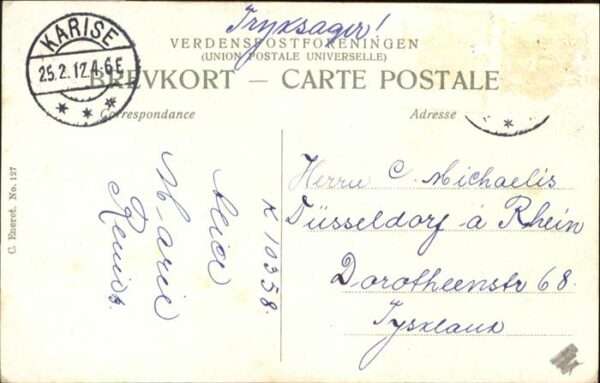 Tryksager!
KARISE
25.2.12.4-6E
VERDENSPOSTFORENINGEN
(UNION POSTALE UNIVERSELLE)
BREVKORT — CARTE POSTALE
Correspondance
Adresse
C. Eneret. No. 127
Marie
K 10358.
Herrn C. Michaelis
Düsseldorf a Rhein
Dorotheenstr 68.
Tyskland